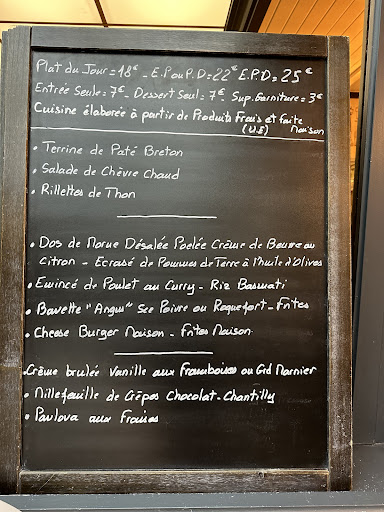 Plat du Jour = 18€ - E.P ou P.D = 22€ E.P.D = 25€
Entrée Seule = 7€ - Dessert Seul = 7€ - Sup. Garniture = 3€
Cuisine élaborée à partir de Produits Frais et faite
(U.E) maison
• Terrine de Paté Breton
• Salade de Chèvre Chaud
• Rillettes de Thon
• Dos de Morue Désalée Poelée Crème de Beurre au
Citron - Ecrasé de Pommes de Terre à l'huile d'Olives
• Emincé de Poulet au Curry - Riz Basmati
• Bavette "Angus" Sce Poivre ou Roquefort - Frites
• Cheese Burger Maison - Frites Maison
• Crème brulée Vanille aux Framboises au Grd Marnier
• Millefeuille de Crêpes Chocolat - Chantilly
• Pavlova aux Fraises